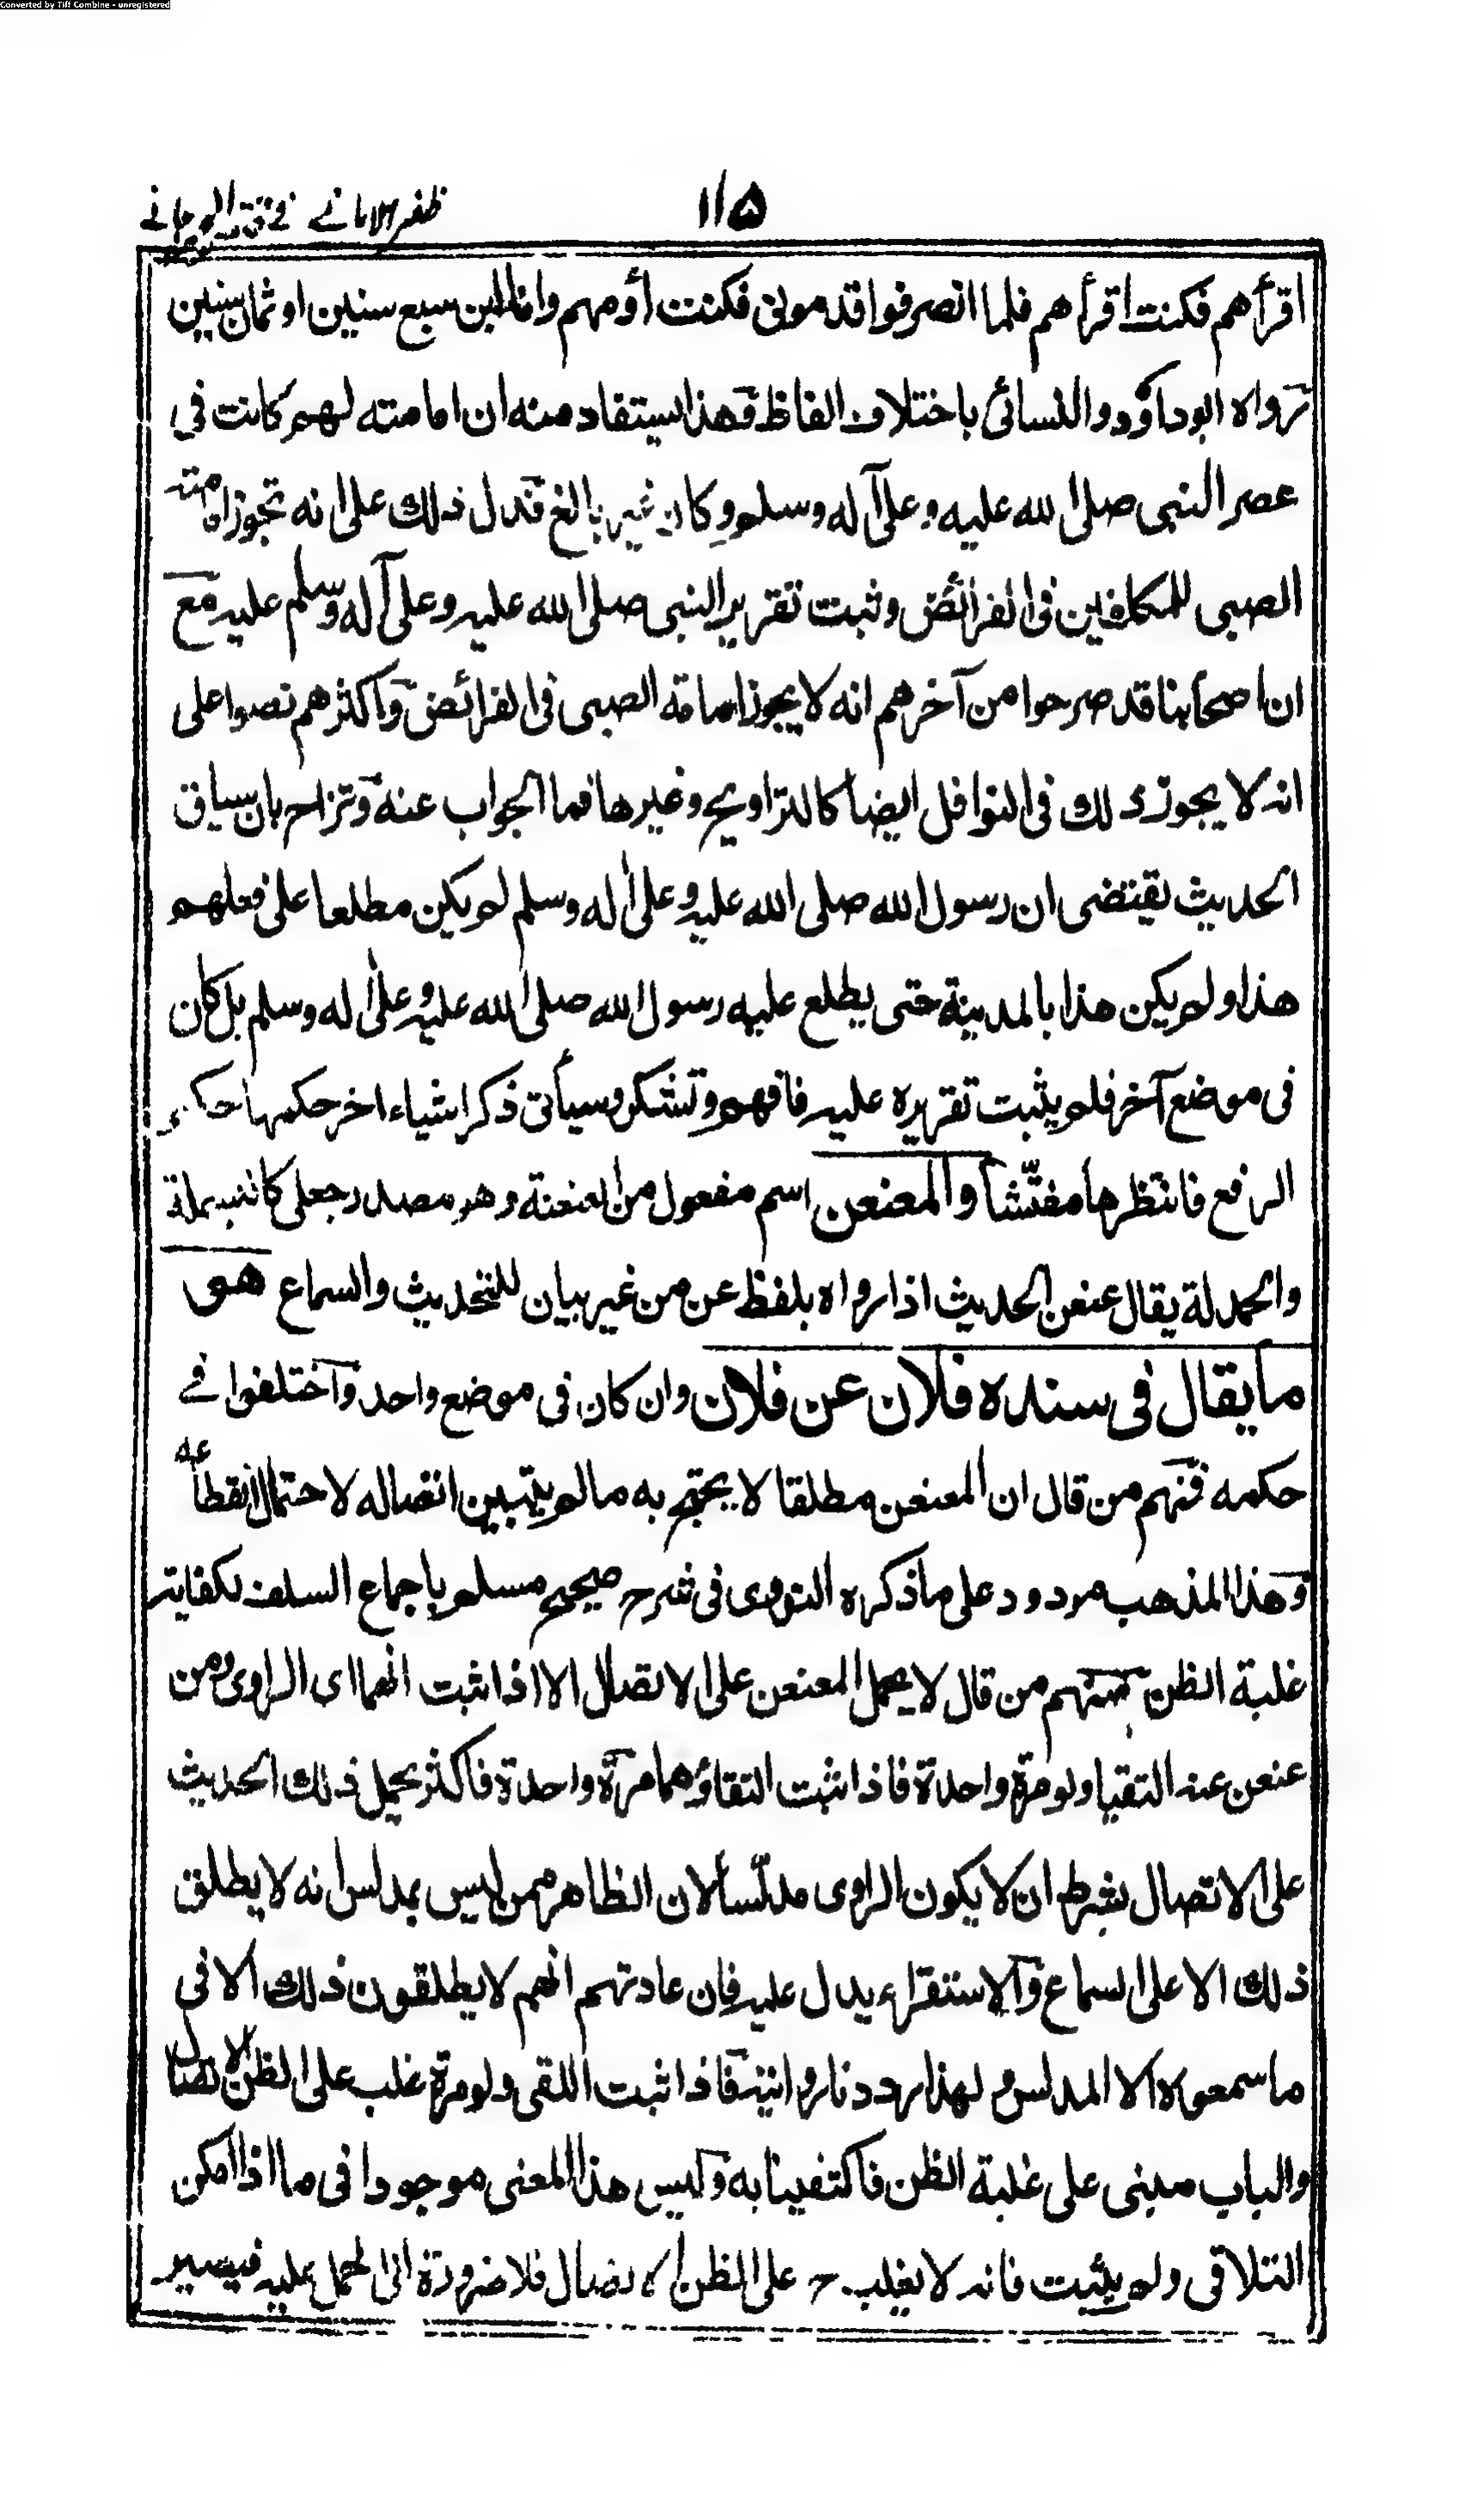 Converted by Tiff Combine - unregistered
١١٥
ظفر الامانے فے الجرجانے
اقرأهم فكنت اقرأهم فلما انصرفوا قدمونى فكنت أؤمهم وانا ابن سبع سنين او ثمان سنين
رواه ابوداؤد والنسائى باختلاف الفاظ فهذا يستفاد منه ان امامته لهم كانت في
عصر النبى صلى الله عليه وعلى آله وسلم وكان غير بالغ فدل ذلك على انه تجوز امامته
الصبى للمكلفين فى الفرائض وثبت تقرير النبى صلى الله عليه وعلى آله وسلم عليه مع
ان اصحابنا قد صرحوا من آخرهم انه لا يجوز امامة الصبى فى الفرائض واكثرهم نصوا على
انه لا يجوز ذلك فى النوافل ايضا كالتراويح وغيرها فما الجواب عنه بان سياق
الحديث يقتضى ان رسول الله صلى الله عليه وعلى اله وسلم لم يكن مطلعا على فعلهم
هذا ولم يكن هذا بالمدينة حتى يطلع عليه رسول الله صلى الله عليه وعلى اله وسلم بل كان
فى موضع آخر فلم يثبت تقريره عليه فافهم وتشكر وسيأتى ذكر اشياء اخر حكمها حكم
الرفع فانتظرها مفتّشا والمعنعن اسم مفعول من العنعنة وهو مصدر جعلى كالبسملة
والحمدلة يقال عنعن الحديث اذا رواه بلفظ عن من غير بيان للتحديث والسماع هو
ما يقال فى سنده فلان عن فلان وان كان فى موضع واحد واختلفوا فے
حكمه فمنهم من قال ان المعنعن مطلقا لا يحتج به ما لم يتبين اتصاله لاحتمال انقطاعه
وهذا المذهب مردود على ما ذكره النووى فى شرح صحيح مسلم باجماع السلف لكفاية
غلبة الظن ومنهم من قال لا يحمل المعنعن على الاتصال الا اذا ثبت انهما اى الراوى ومن
عنعن عنه التقيا ولو مرة واحدة فاذا ثبت التقاؤهما مرة واحدة فاكثر يحمل ذلك الحديث
على الاتصال بشرط ان لا يكون الراوى مدلّسا لان الظاهر ممن ليس بمدلس انه لا يطلق
ذلك الا على السماع والاستقراء يدل عليه فان عادتهم انهم لا يطلقون ذلك الا فى
ما سمعوه الا المدلس ولهذا رددنا روايته فاذا ثبت اللقى ولو مرة غلب على الظن الاتصال
والباب مبنى على غلبة الظن فاكتفينا به وليس هذا المعنى موجودا فى ما اذا امكن
التلاقى ولم يثبت فانه لا يغلب على الظن الاتصال فلا ضرورة الى الحمل عليه فيصير